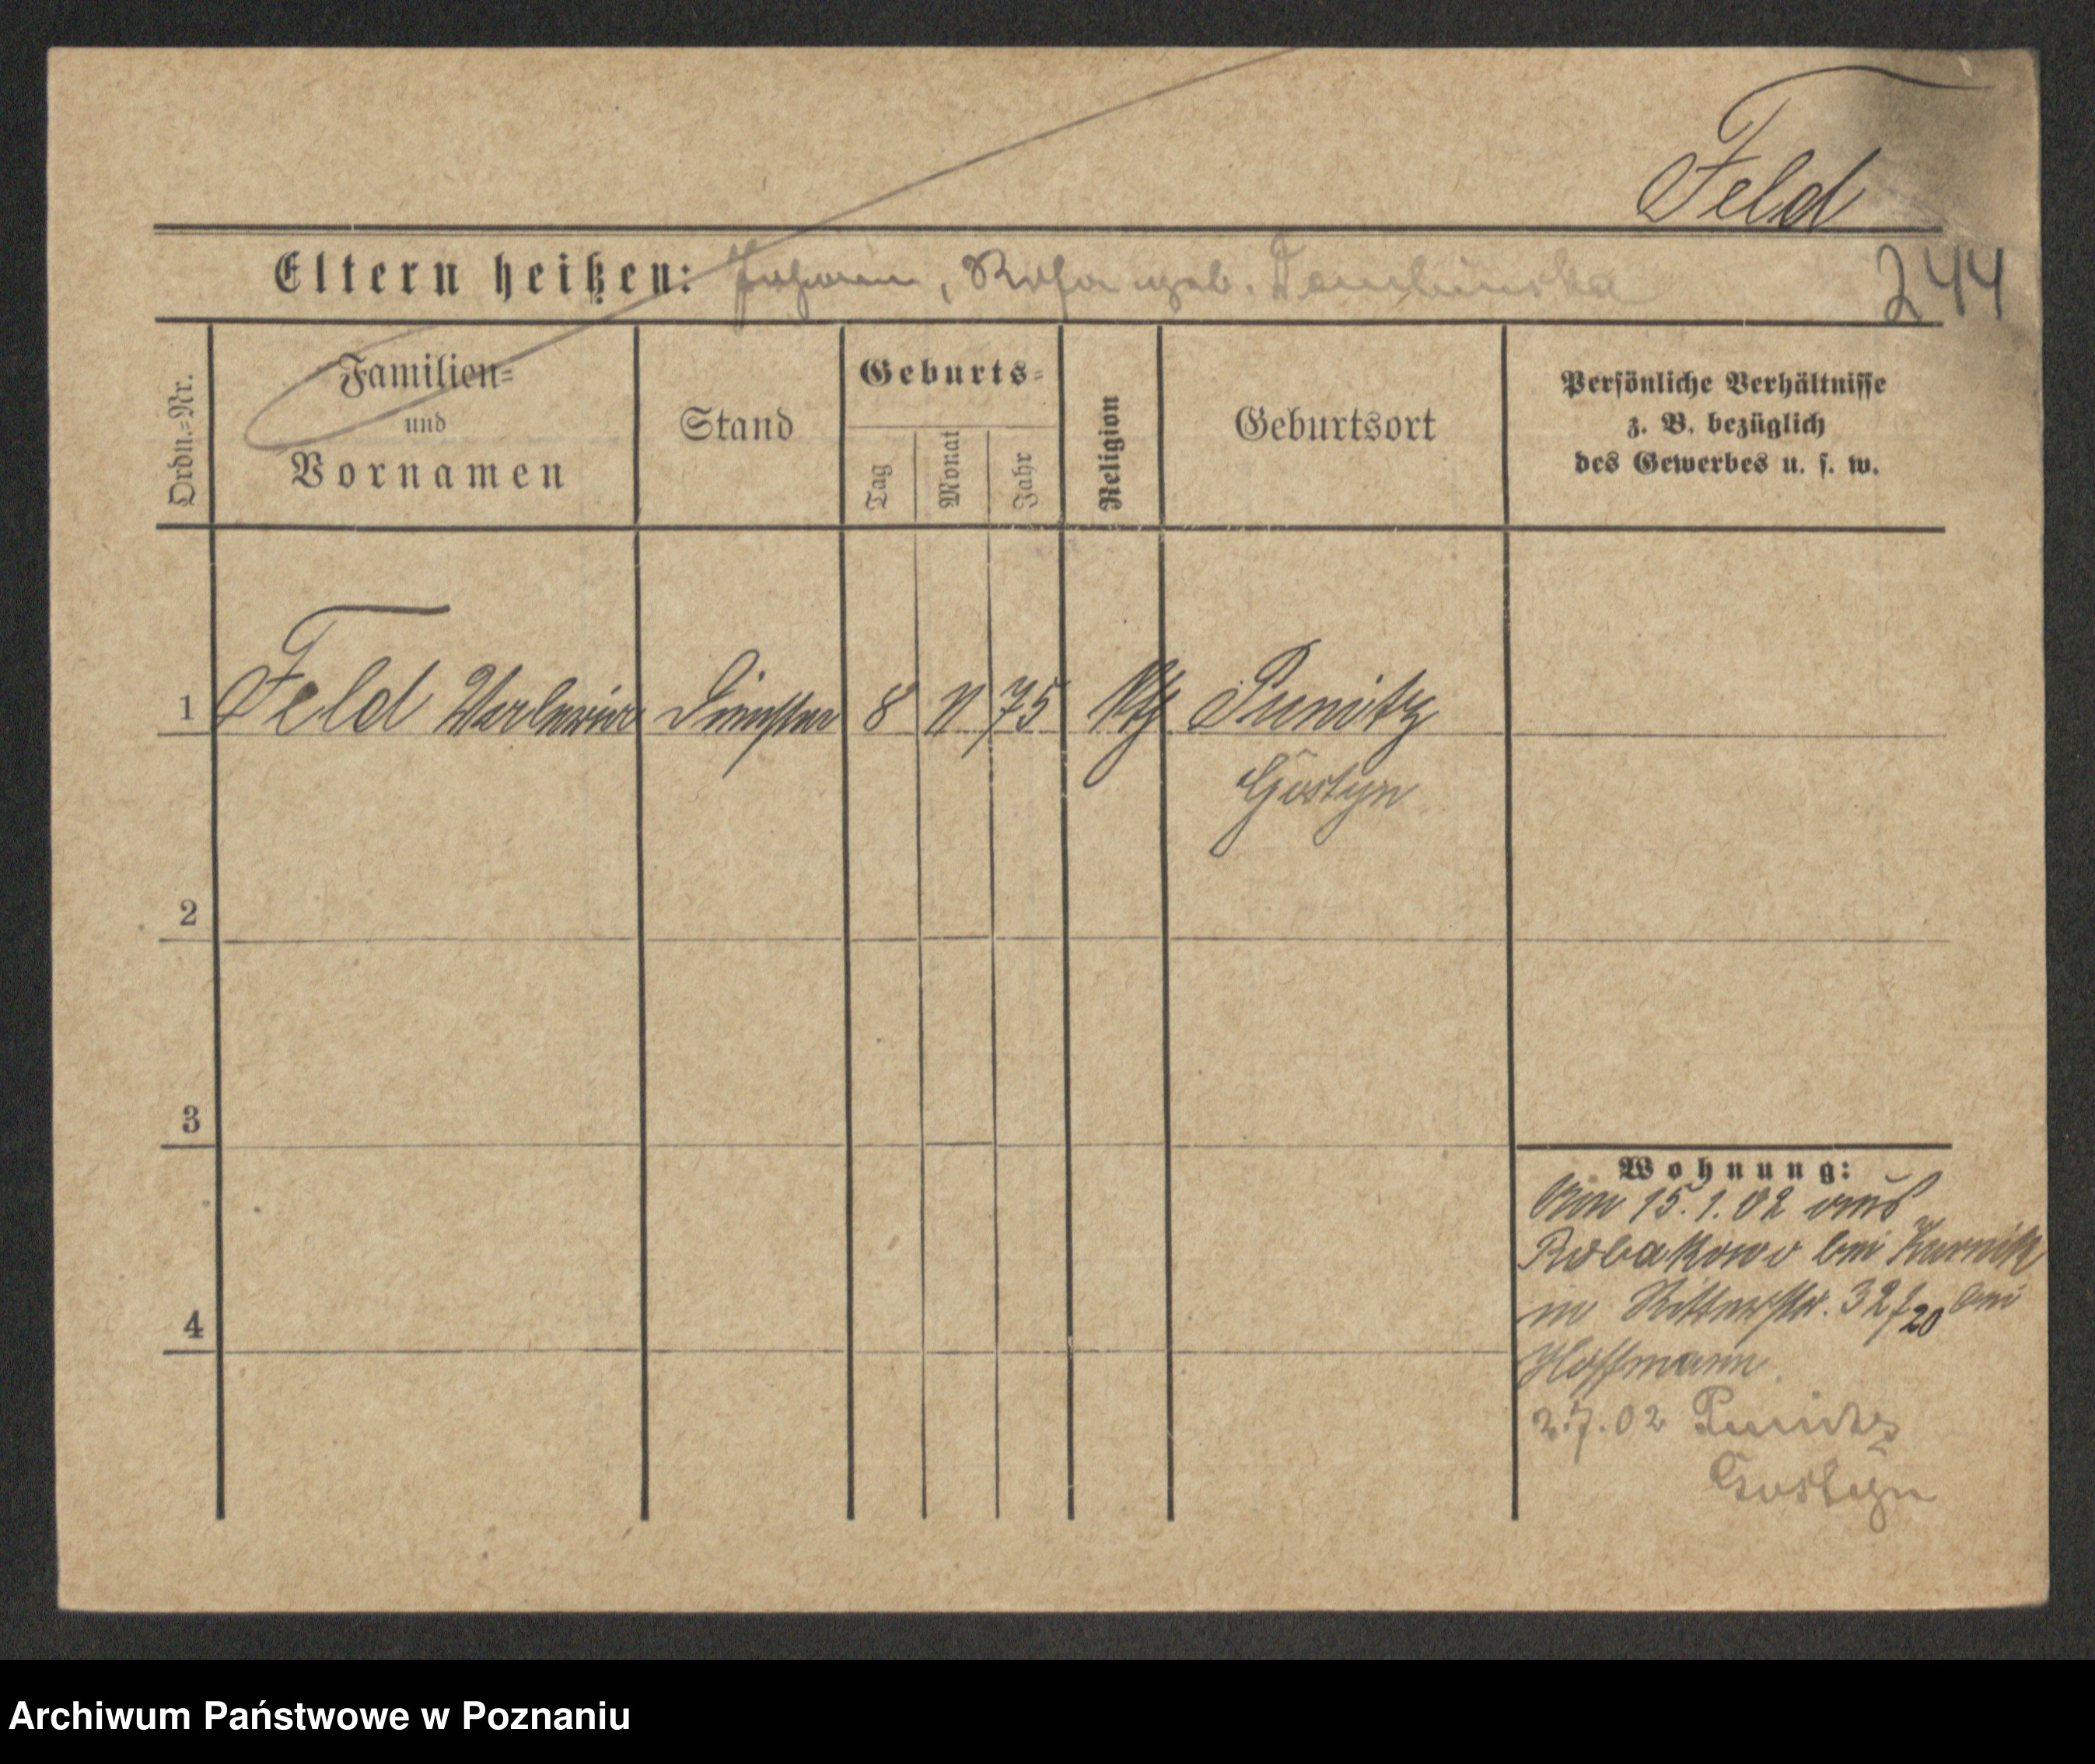 Feld
Eltern heißen: Johann, Rosa geb. Dembinska
244
Ordn.-Nr.
Familien-
und
Vornamen
Stand
Geburts-
Tag
Monat
Jahr
Religion
Geburtsort
Persönliche Verhältnisse
z. B. bezüglich
des Gewerbes u. s. w.
1 Feld 8 11 75 kth Punitz
Gostyn
2
3
4
Wohnung:
Am 15.1.02 aus
Robakowo bei Kurnik
in Ritterstr. 32 f 20 bei
Hoffmann
2.7.02 Punitz
Gostyn
Archiwum Państwowe w Poznaniu